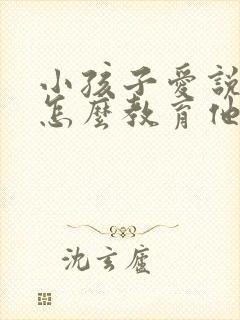 小孩子愛說
怎麼教育他
沈玄廬